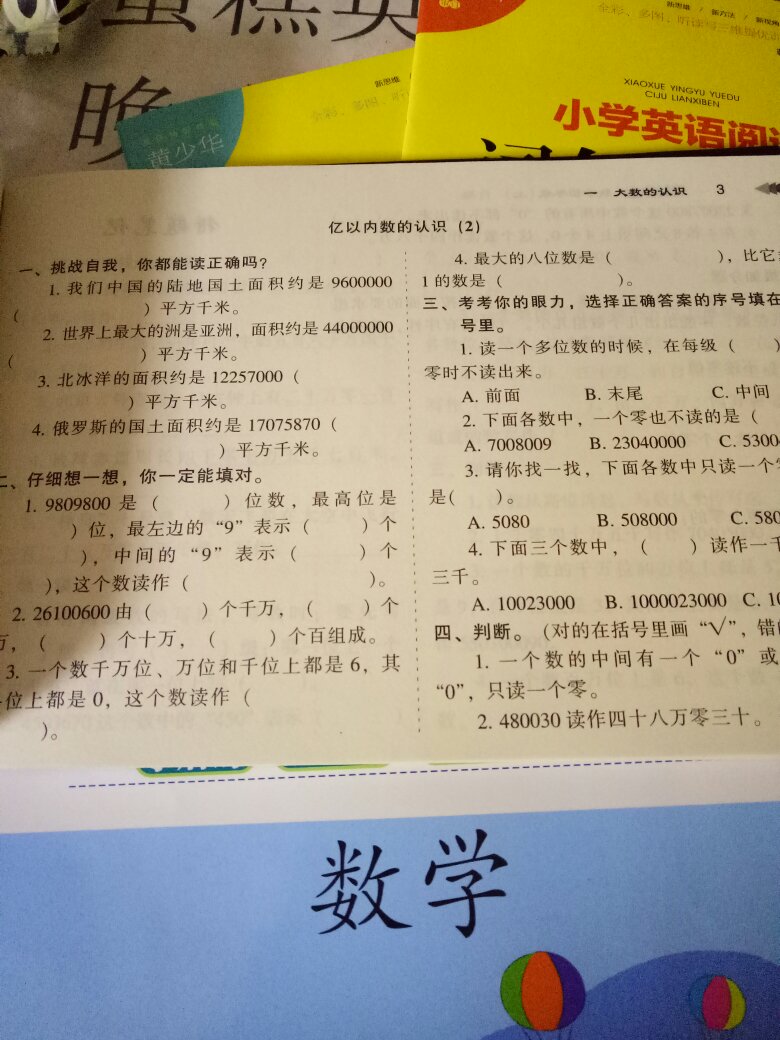 蛋糕英
晚
新思维
黄少华
全彩、多图、听读写三维贴
新思维 / 新方法 / 新视角
XIAOXUE YINGYU YUEDU
CIJU LIANXIBEN
小学英语阅读
一 大数的认识 3
亿以内数的认识（2）
一、挑战自我，你都能读正确吗？
1. 我们中国的陆地国土面积约是 9600000
（ ）平方千米。
2. 世界上最大的洲是亚洲，面积约是 44000000
（ ）平方千米。
3. 北冰洋的面积约是 12257000（
）平方千米。
4. 俄罗斯的国土面积约是 17075870（
）平方千米。
二、仔细想一想，你一定能填对。
1. 9809800 是（ ）位数，最高位是
）位，最左边的“9”表示（ ）个
），中间的“9”表示（ ）个
），这个数读作（ ）。
2. 26100600 由（ ）个千万，（ ）个
万，（ ）个十万，（ ）个百组成。
3. 一个数千万位、万位和千位上都是 6，其
位上都是 0，这个数读作（
）。
4. 最大的八位数是（ ），比它
1 的数是（ ）。
三、考考你的眼力，选择正确答案的序号填在
号里。
1. 读一个多位数的时候，在每级（ ）
零时不读出来。
A. 前面 B. 末尾 C. 中间
2. 下面各数中，一个零也不读的是（
A. 7008009 B. 23040000 C. 5300
3. 请你找一找，下面各数中只读一个
是（ ）。
A. 5080 B. 508000 C. 580
4. 下面三个数中，（ ）读作一千
三千。
A. 10023000 B. 1000023000 C. 10
四、判断。（对的在括号里画“√”，错
1. 一个数的中间有一个“0”或
“0”，只读一个零。
2. 480030 读作四十八万零三十。
数学